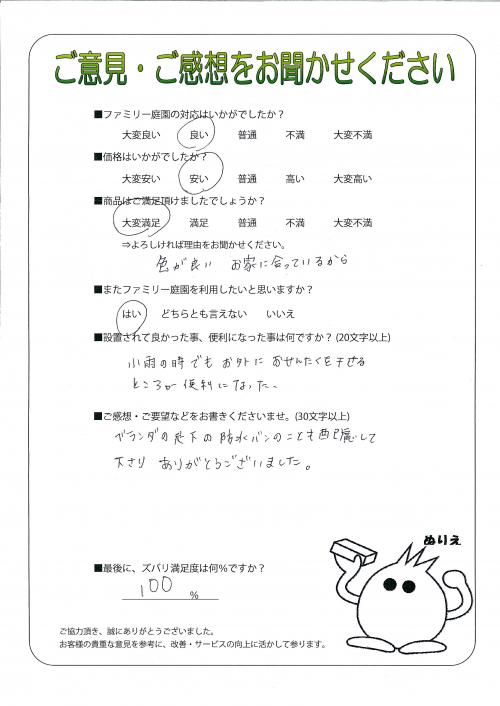 ご意見・ご感想をお聞かせください
■ファミリー庭園の対応はいかがでしたか？
大変良い 良い 普通 不満 大変不満
■価格はいかがでしたか？
大変安い 安い 普通 高い 大変高い
■商品はご満足頂けましたでしょうか？
大変満足 満足 普通 不満 大変不満
⇒よろしければ理由をお聞かせください。
色が良い お家に合っているから
■またファミリー庭園を利用したいと思いますか？
はい どちらとも言えない いいえ
■設置されて良かった事、便利になった事は何ですか？(20文字以上)
小雨の時でもお外におせんたくを干せる
ところが便利になった。
■ご感想・ご要望などをお書きくださいませ。(30文字以上)
ベランダの床下の防水パンのことも配慮して
下さり ありがとうございました。
ぬりえ
■最後に、ズバリ満足度は何%ですか？
100 %
ご協力頂き、誠にありがとうございました。
お客様の貴重な意見を参考に、改善・サービスの向上に活かして参ります。